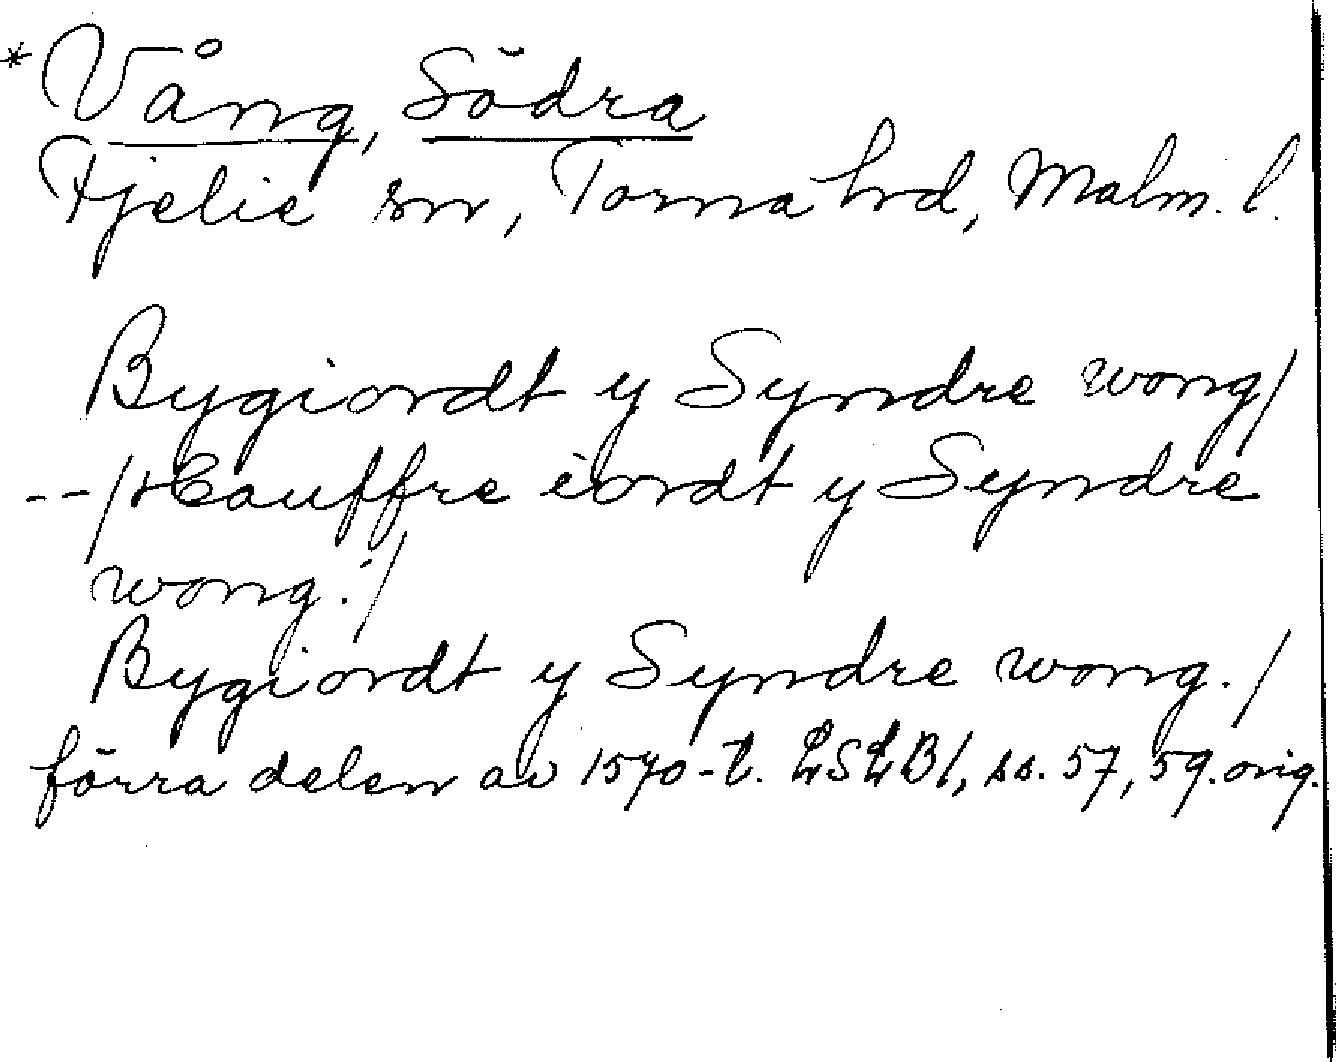 *Vång, Södra
Fjelie sn, Torna hrd, Malm. l.
Bygiordt y Syndre wong/
--/ Hauffre iordt y Syndre
wong./
Bygiordt y Syndre wong./
förra delen av 1570-t. LSLB1, ss. 57, 59. orig.